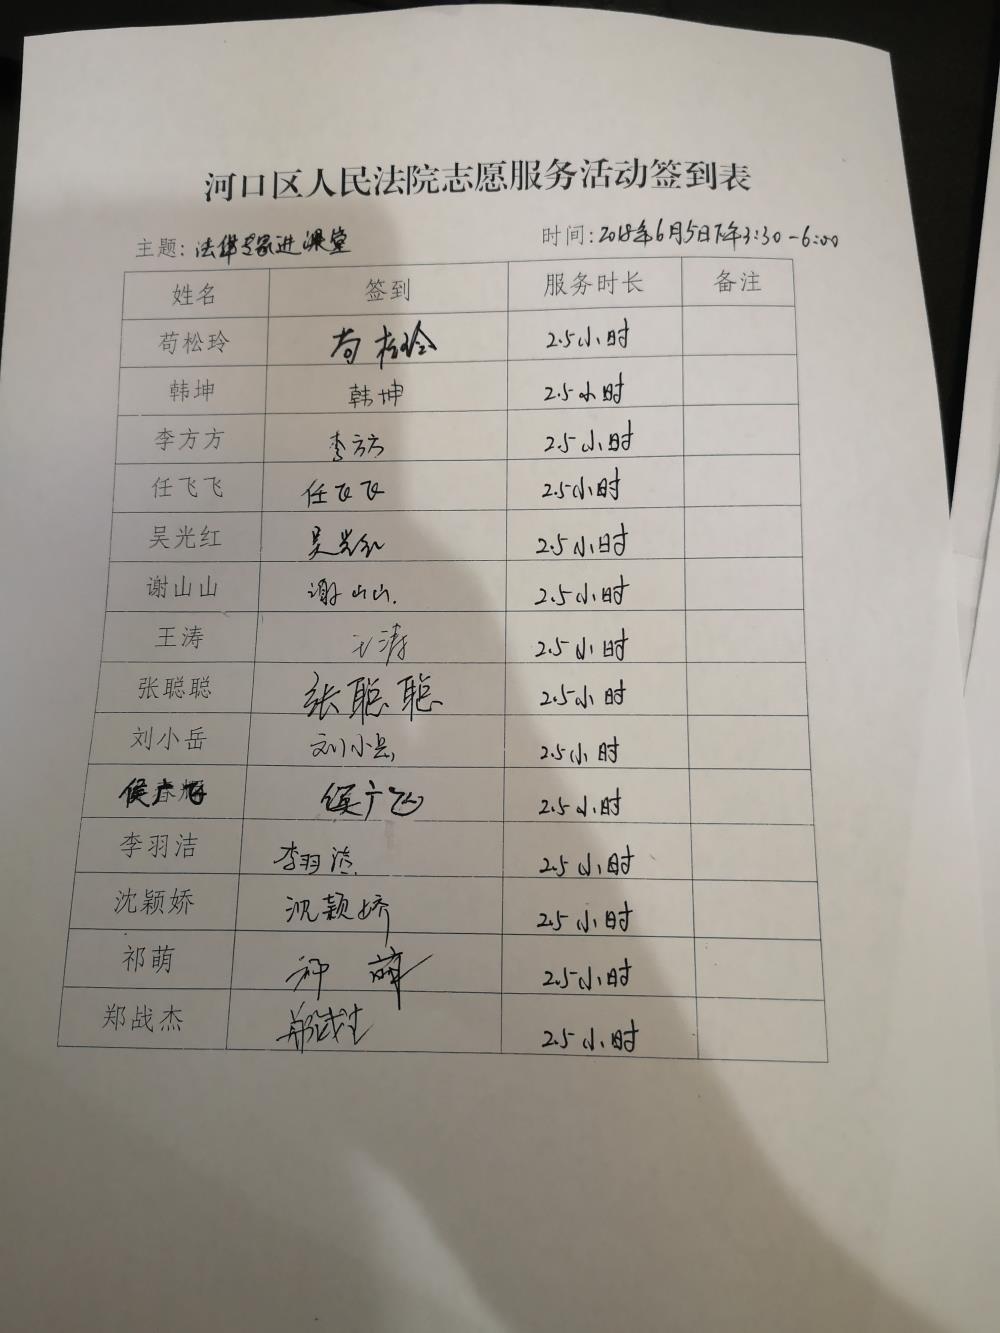 河口区人民法院志愿服务活动签到表
主题：法律专家进课堂 时间：2018年6月5日下午3:30-6:00
姓名 签到 服务时长 备注
苟松玲 苟松玲 2.5小时
韩坤 韩坤 2.5小时
李方方 李方方 2.5小时
任飞飞 任飞飞 2.5小时
吴光红 吴光红 2.5小时
谢山山 谢山山. 2.5小时
王涛 王涛 2.5小时
张聪聪 张聪聪 2.5小时
刘小岳 刘小岳 2.5小时
侯广飞 2.5小时
李羽洁 李羽洁 2.5小时
沈颖娇 沈颖娇 2.5小时
祁萌 祁萌 2.5小时
郑战杰 郑战杰 2.5小时